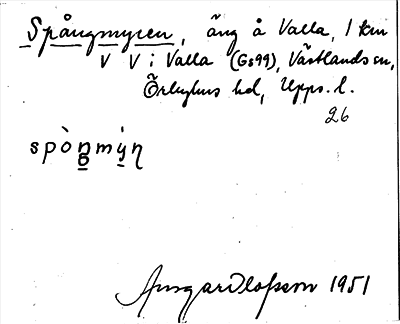 Spångmyren, äng å Valla, 1 km
V V i Valla (Gs99), Västlands sn,
Örbyhus hd, Upps. l.
26
spòŋmýn
Ansgar Olofsson 1951